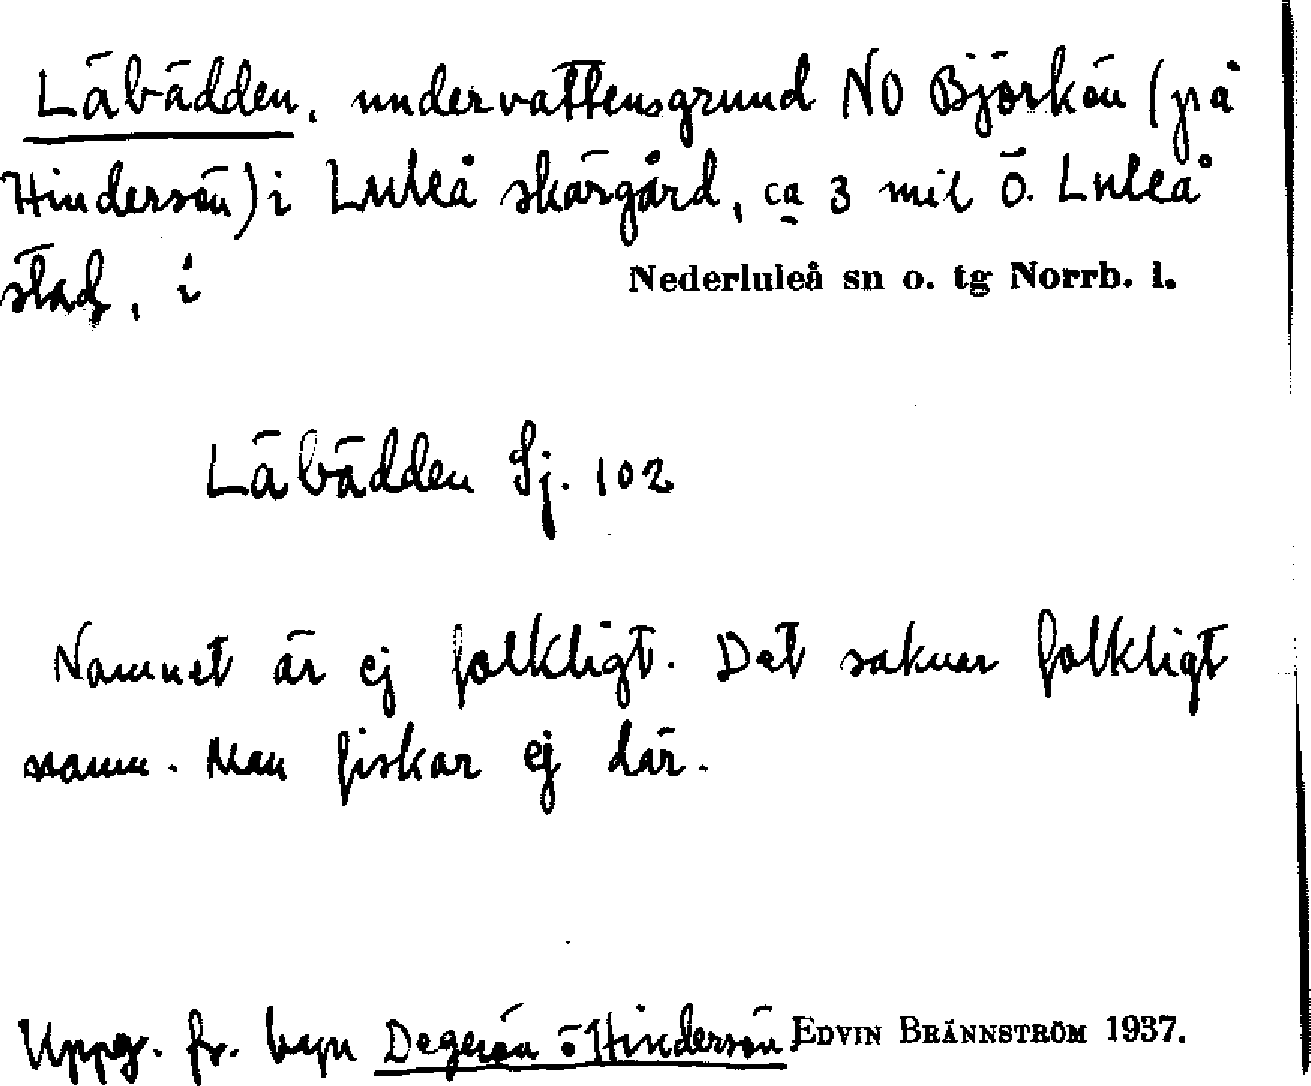 Läbädden, undervattensgrund NO Björkön (på
Hindersön) i Luleå skärgård, ca 3 mil Ö. Luleå
stad, i Nederluleå sn o. tg Norrb. l.
Läbädden Sj. 102
Namnet är ej folkligt. Det saknar folkligt
namn. Man fiskar ej där.
Uppg. fr. byn Degerön å Hindersön EDVIN BRÄNNSTRÖM 1937.